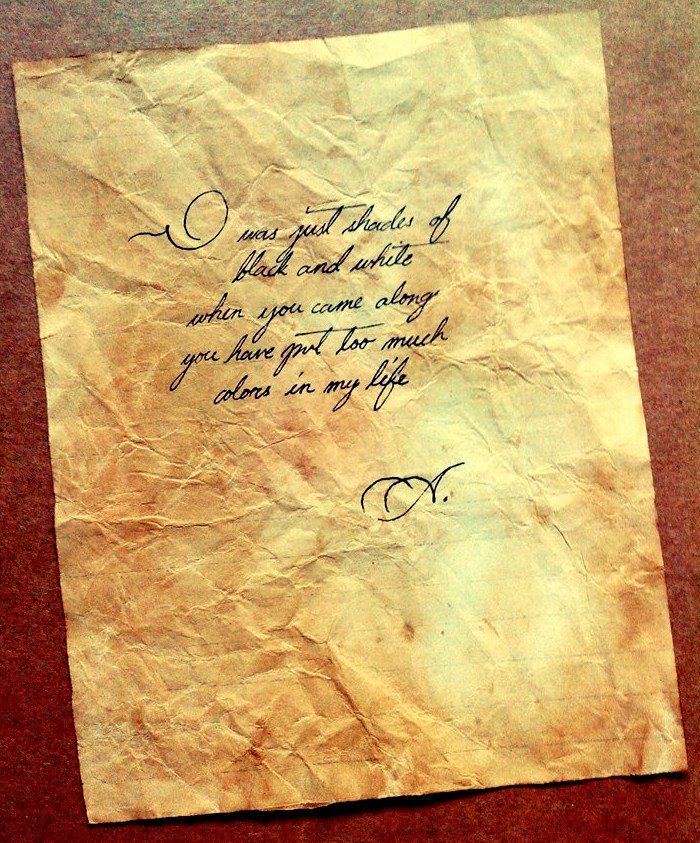 I was just shades of
black and white
when you came along
you have put too much
colors in my life
A.